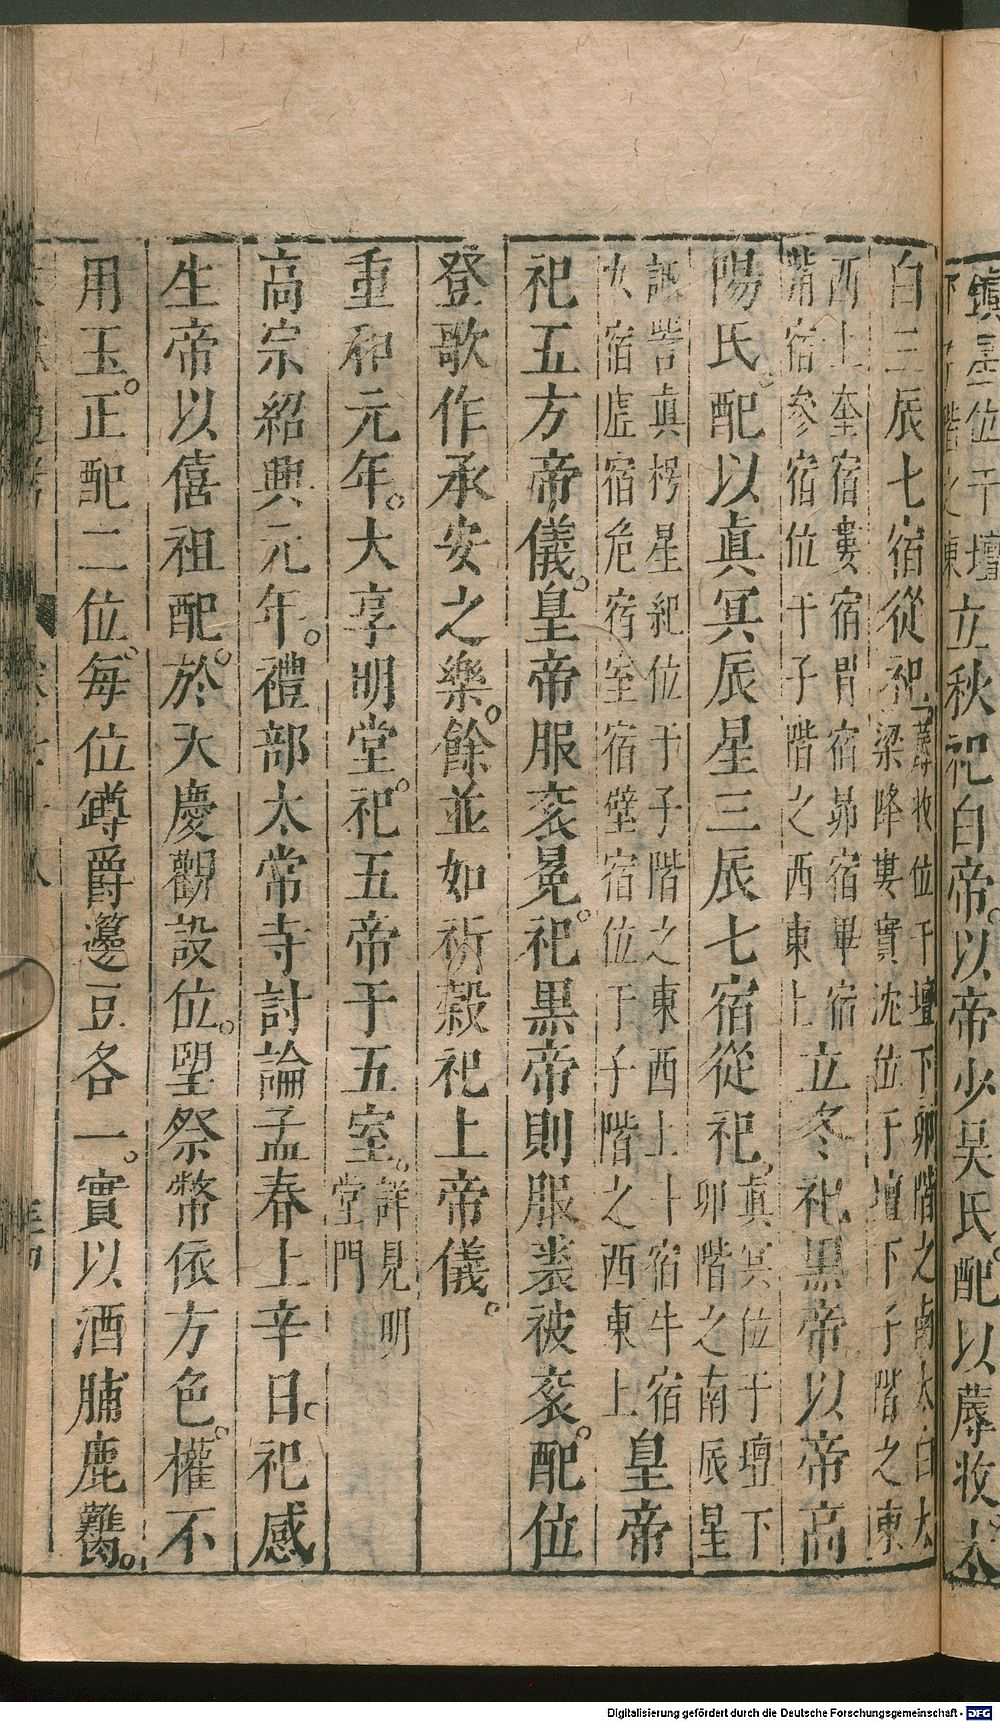 鎭星位于壇
立秋祀白帝。以帝少昊氏。配以蓐收。太
白三辰七宿從祀。蓐收位于壇下卯階之南太白太
梁降婁實沈位于壇下子階之東
西上奎宿婁宿胃宿昴宿畢宿
觜宿參宿位于子階之西東上
立冬祀黒帝以帝高
陽氏。配以眞冥辰星三辰七宿從祀。眞冥位于壇下
卯階之南辰星
諏訾眞枵星紀位于子階之東西上十宿牛宿
女宿虛宿危宿室宿壁宿位于子階之西東上
皇帝
祀五方帝儀。皇帝服袞冕。祀黒帝則服裘被袞。配位
登歌作承安之樂。餘並如祈穀祀上帝儀。
重和元年。大享明堂。祀五帝于五室。詳見明
堂門
高宗紹興元年。禮部太常寺討論孟春上辛日。祀感
生帝以僖祖配。於天慶觀設位。望祭幣依方色。權不
用玉。正配二位。每位罇爵籩豆各一。實以酒脯鹿臡。
Digitalisierung gefördert durch die Deutsche Forschungsgemeinschaft - DFG